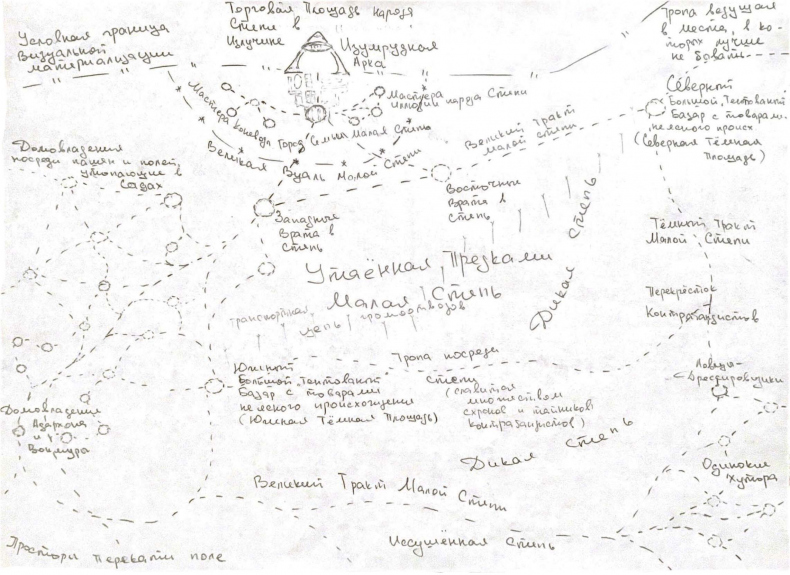 Торговая Площадь народа
Степи в
Излучине
Тропа ведущая
в места, в ко-
торых лучше
не бывать
Условная граница
Визуальной
материализации
Изумрудная
Арка
Северный
Большой Тентованный
Базар с товарами
неясного происх.
(Северная Тёмная
Площадь)
Мастера
иллюзий народа Степи
Мастера коневоды
Город Семьи Малая Степь
Великая Вуаль Малой Степи
Великий Тракт
Малой Степи
Домовладения
посреди пашен и полей,
утопающие в
садах
Западные
Врата в
Степь
Восточные
Врата в
Степь
Дикая Степь
Тёмный Тракт
Малой Степи
Утаённая Предками
Малая Степь
Транспортная
цепь громоотводов
Перекрёсток
Контрабандистов
Южный
Большой Тентованный
Базар с товарами
неясного происхождения
(Южная Тёмная Площадь)
Тропа посреди
степи
(славится
множеством
схронов и тайников
контрабандистов)
Ловцы-
Дрессировщики
Домовладения
Азархона
и
Вокмура
Дикая Степь
Одинокие
Хутора
Великий Тракт Малой Степи
Иссушённая Степь
Просторы перекати поле